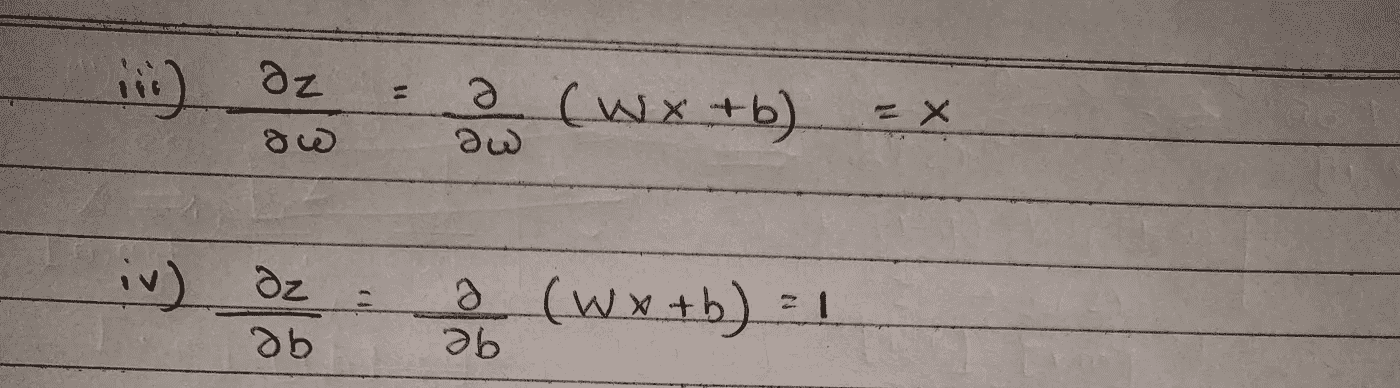 iii) ∂z/∂w = ∂/∂w (Wx + b) = x
iv) ∂z/∂b = ∂/∂b (Wx + b) = 1